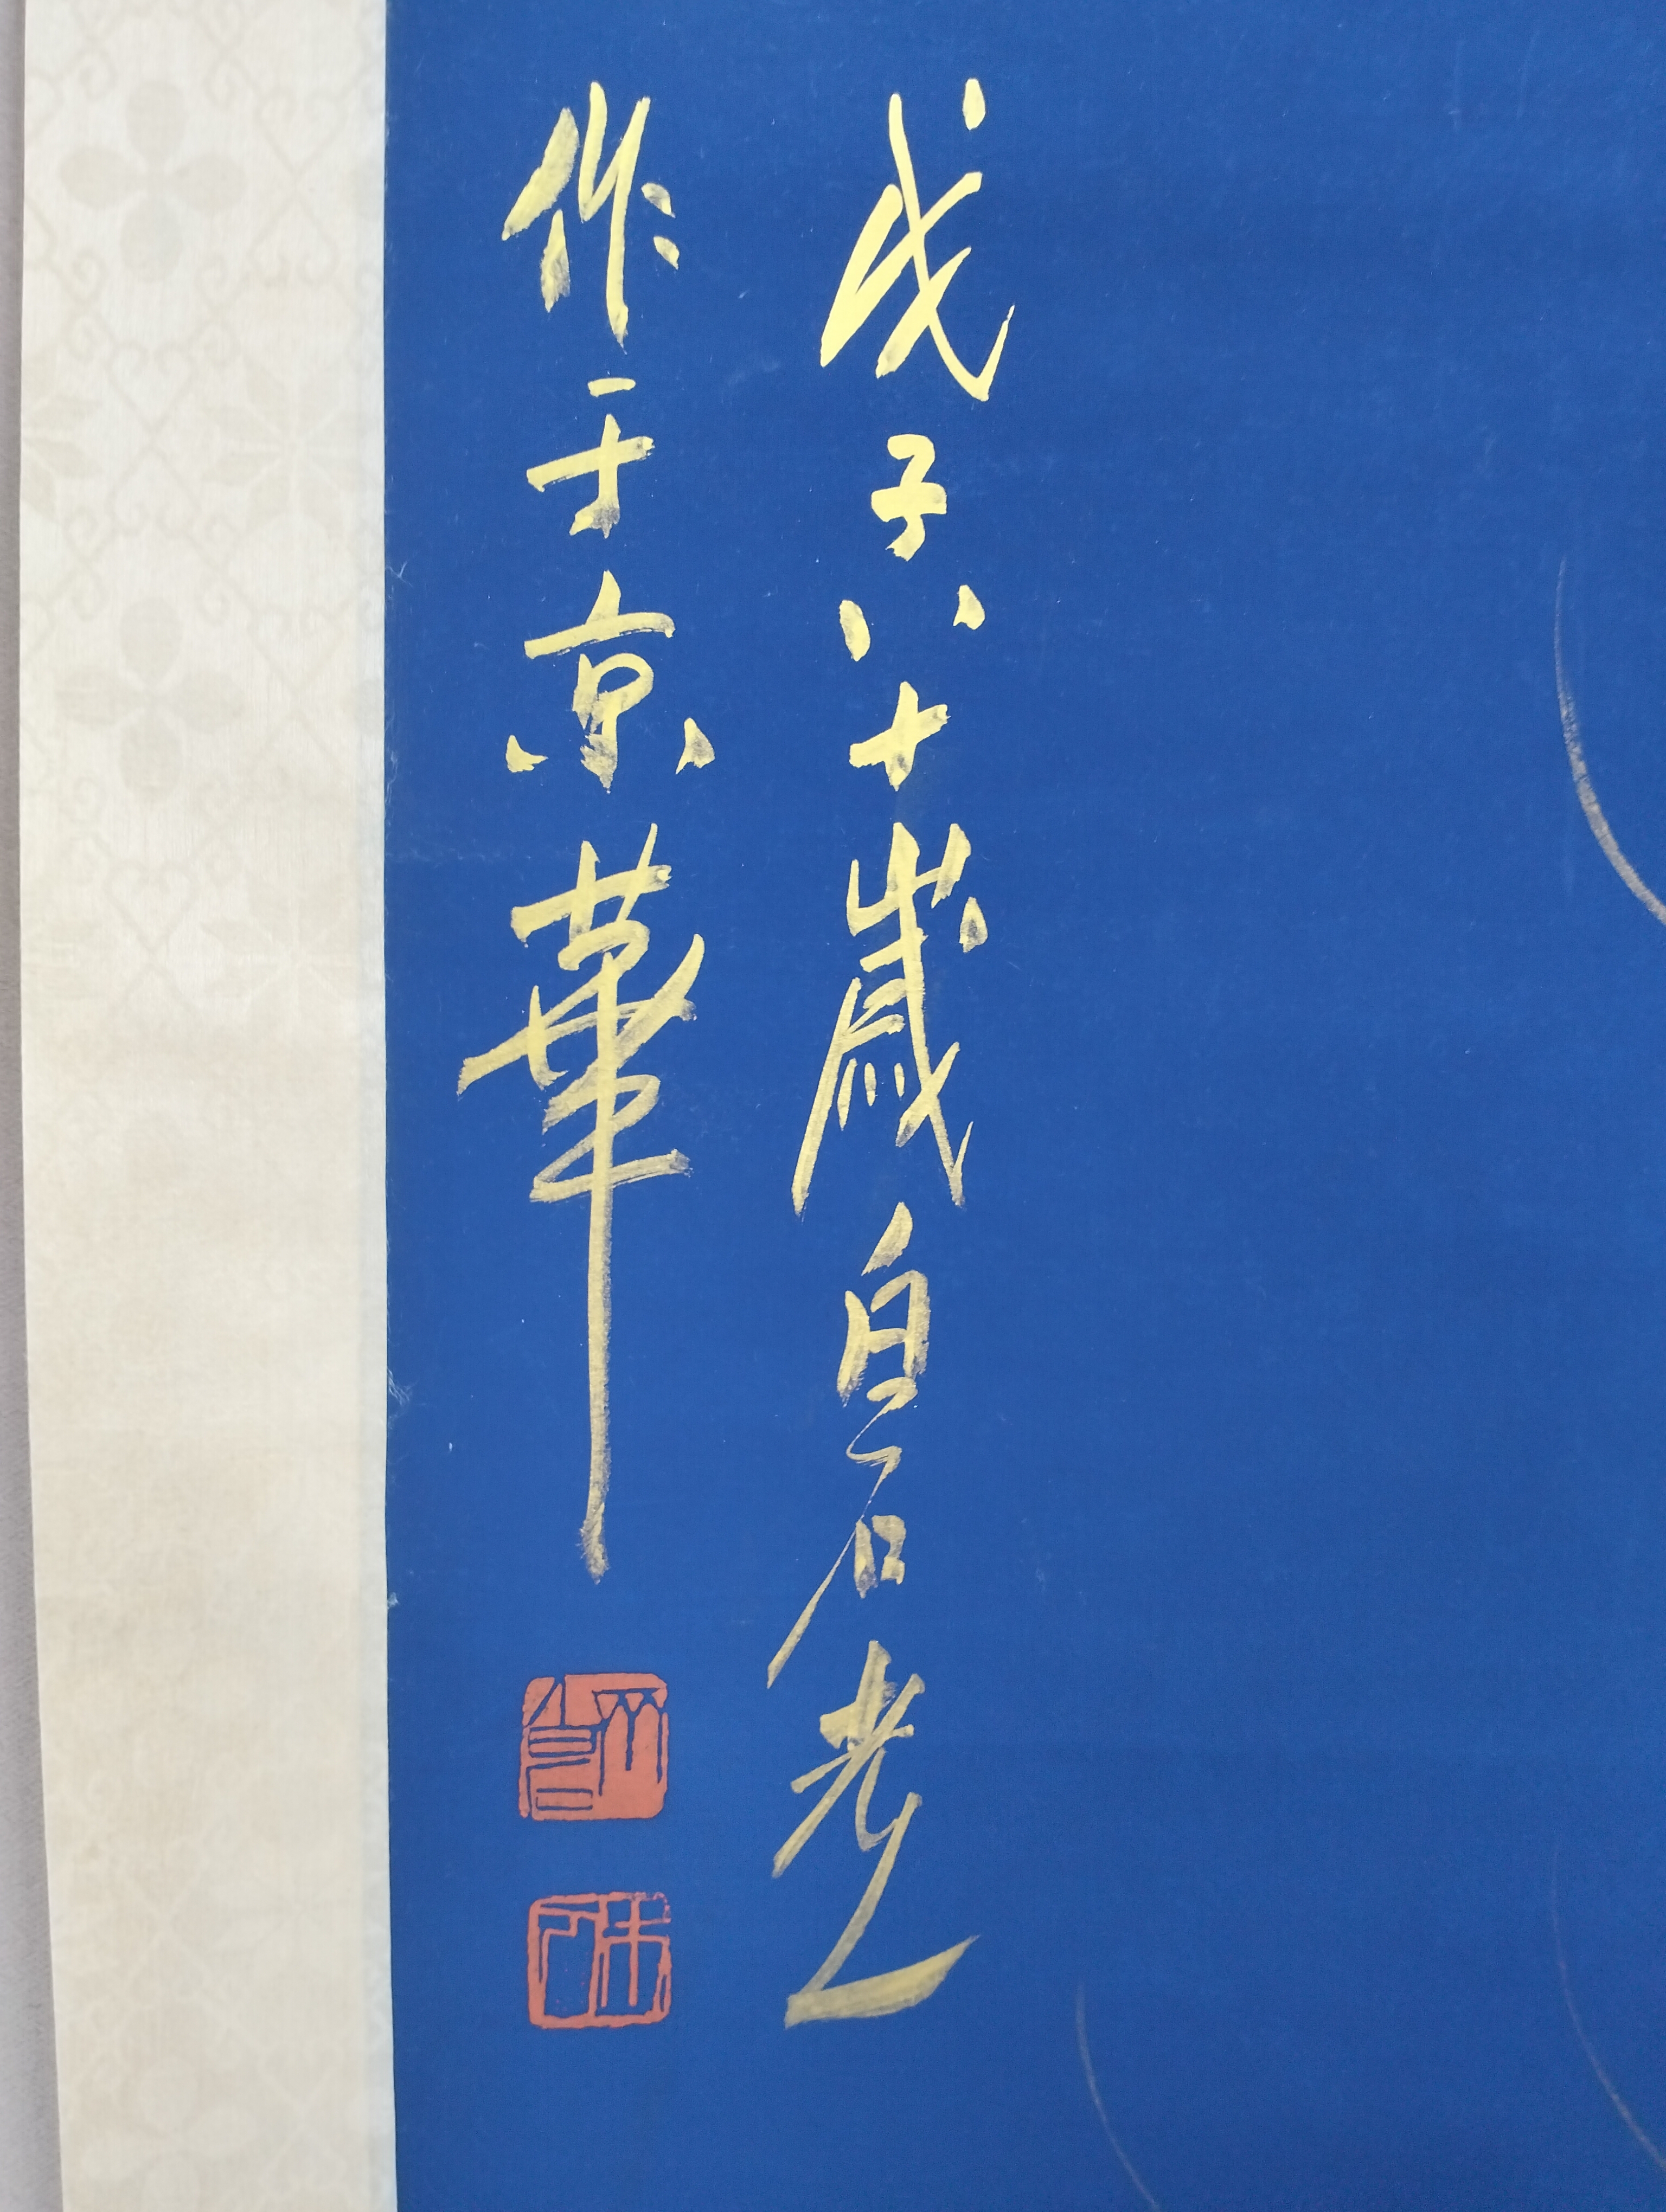 戊子八十歲白石老人
作于京華